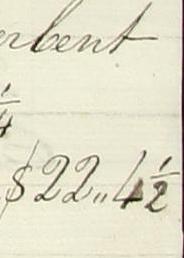 erbent
1/4
$22.. 4 1/2